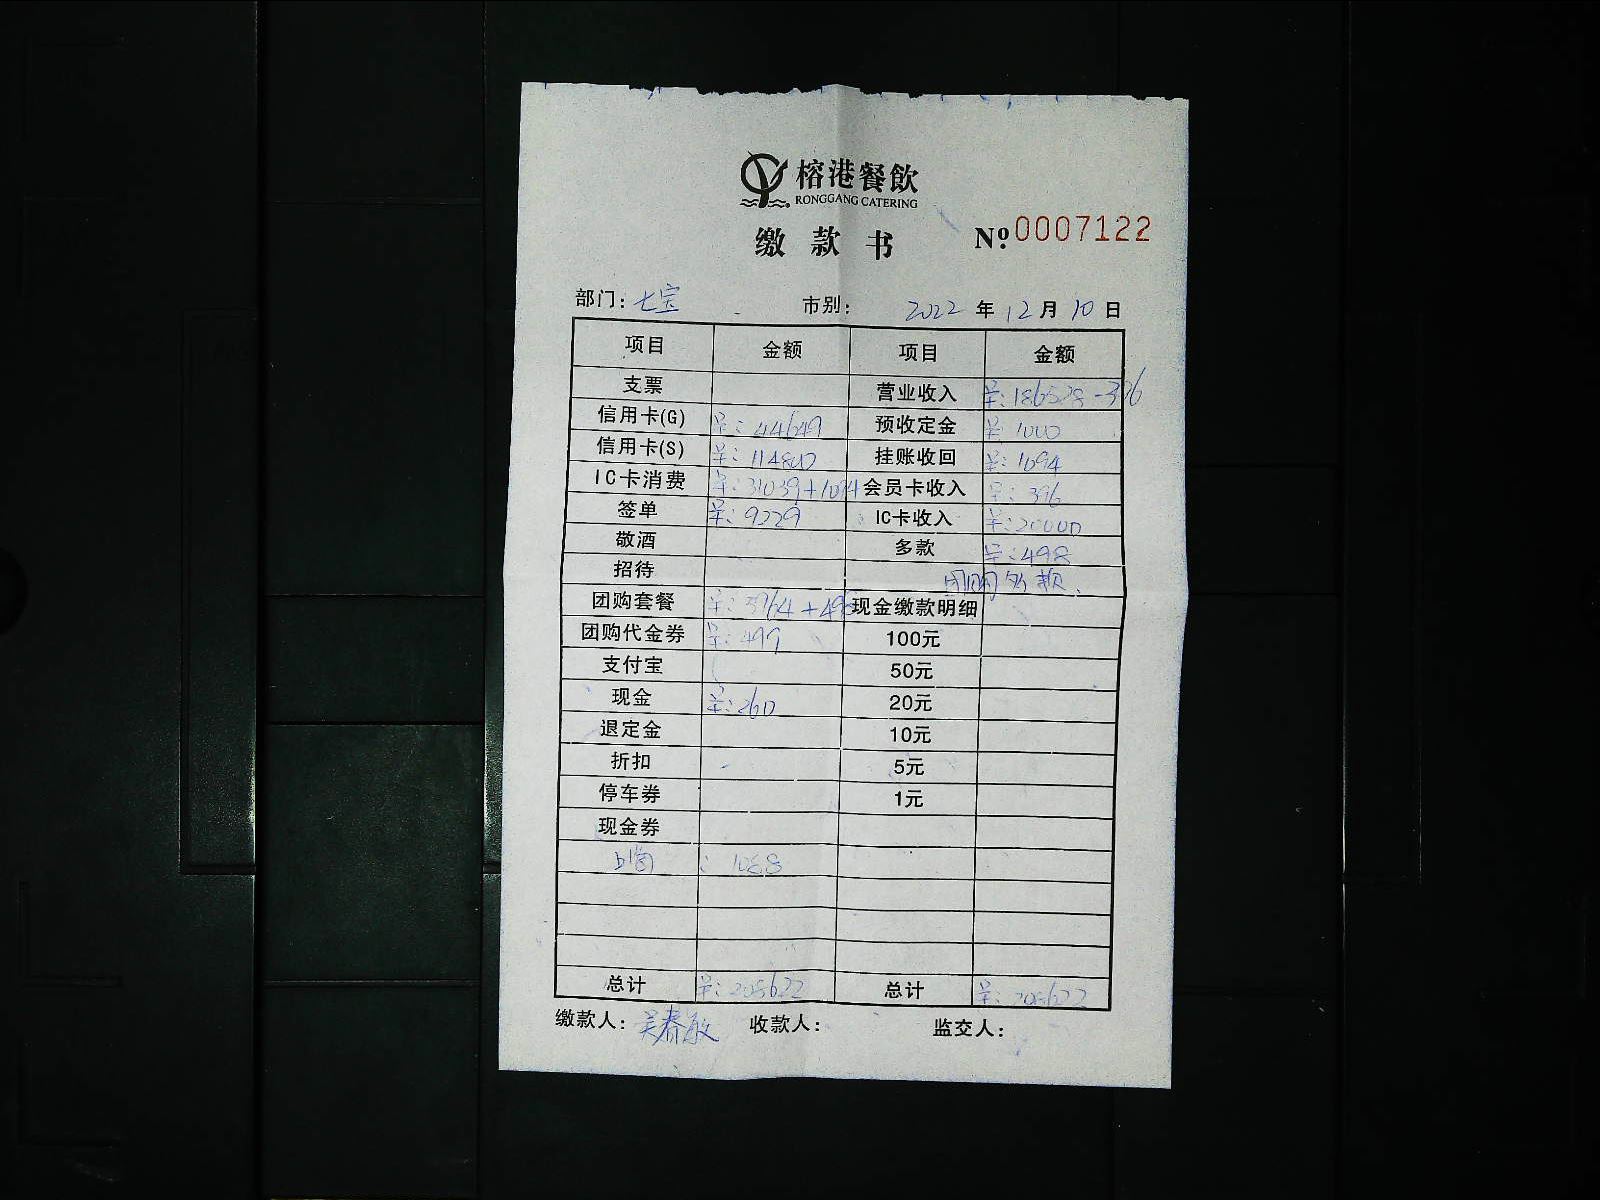 榕港餐飲
RONGGANG CATERING
缴款书 Nº 0007122
部门: 七宝 市别: 2022 年 12 月 10 日
项目 金额 项目 金额
支票 营业收入 186528-396
信用卡(G) 44649 预收定金 1000
信用卡(S) 114800 挂账收回 1094
IC卡消费 31039+1094 会员卡收入 396
签单 9229 IC卡收入 20000
敬酒 多款 498
招待 团购多款.
团购套餐 3964+498 现金缴款明细
团购代金券 499 100元
支付宝 50元
现金 260 20元
退定金 10元
折扣 5元
停车券 1元
现金券
总计 205622 总计 205622
缴款人: 吴春敏 收款人: 监交人: